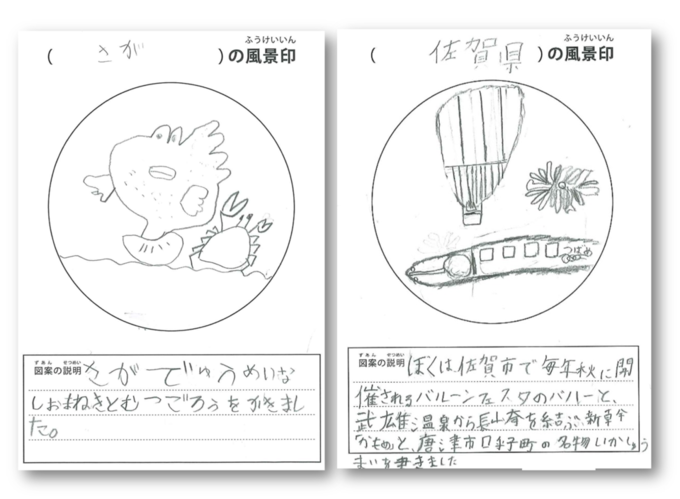 ふうけいいん
( さが )の風景印
ずあん せつめい
図案の説明 さがでゅうめいな
しおまねきとむつごろうをかきまし
た。
ふうけいいん
( 佐賀県 )の風景印
つばめ
ずあん せつめい
図案の説明 ぼくは佐賀市で毎年秋に開
催されるバルーンフェスタのバルーンと、
武雄温泉から長崎を結ぶ、新幹
「かもめ」と、唐津市呼子町の名物いかしゅう
まいを書きました